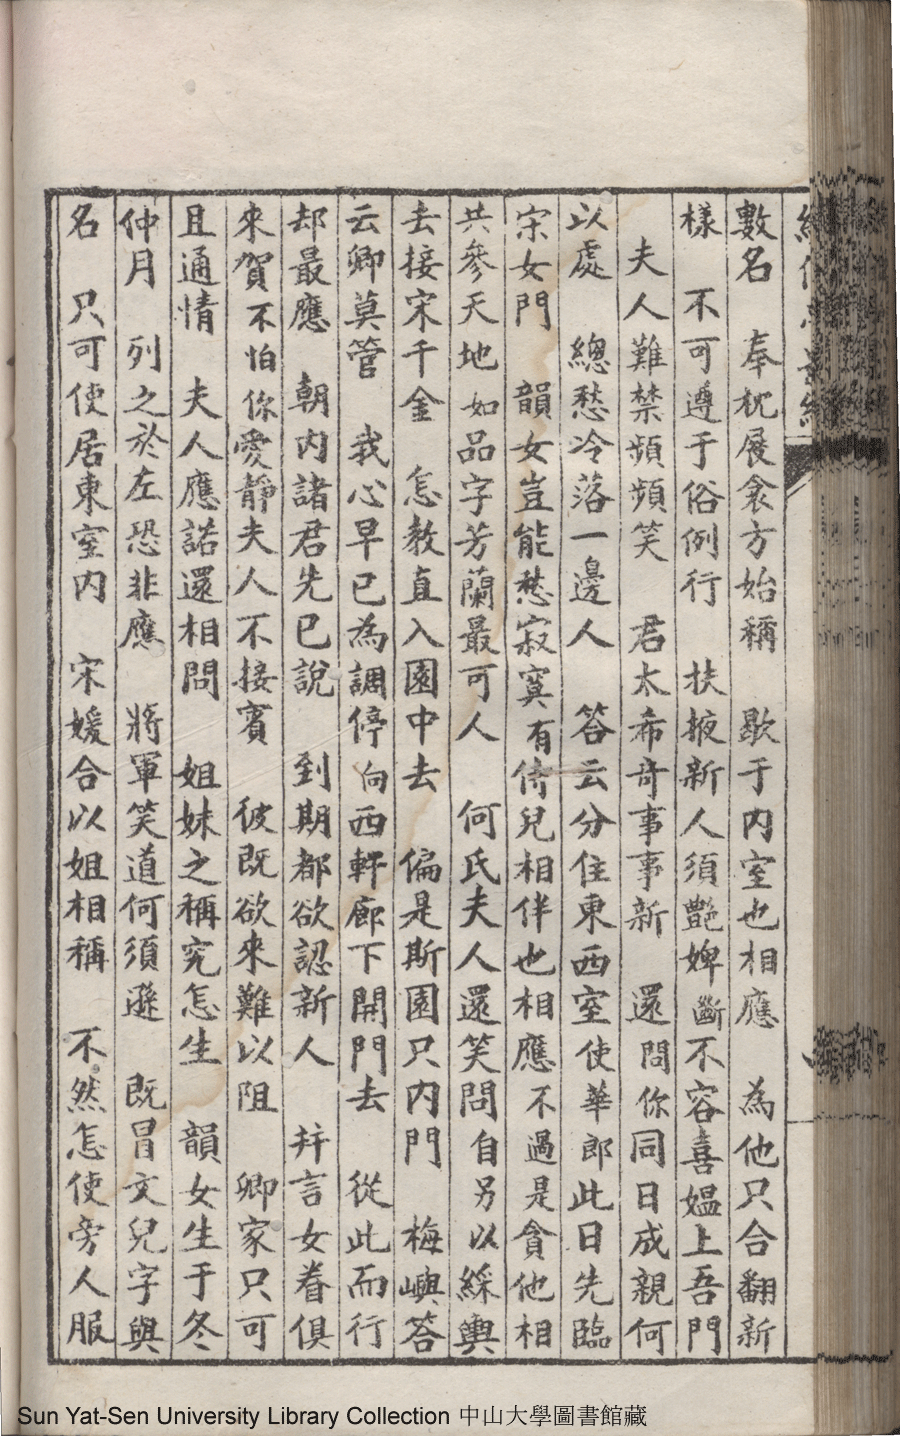 數名　奉枕展衾方始稱　歇于內室也相應　為他只合翻新
樣　不可遵于俗例行　扶掖新人須艷婢斷不容喜媼上吾門
夫人難禁頻頻笑　君太希奇事事新　還問你同日成親何
以處　總愁冷落一邊人　答云分住東西室使華郎此日先臨
宗女門　韻女豈能愁寂寞有侍兒相伴也相應不過是貪他相
共參天地如品字芳蘭最可人　何氏夫人還笑問自另以綵輿
去接宋千金　怎教直入園中去　偏是斯園只內門　梅嶼答
云卿莫管　我心早已為調停向西軒廊下開門去　從此而行
却最應　朝內諸君先已說　到期都欲認新人　幷言女眷俱
來賀不怕你愛靜夫人不接賓　彼既欲來難以阻　卿家只可
且通情　夫人應諾還相問　姐妹之稱究怎生　韻女生于冬
仲月　列之於左恐非應　將軍笑道何須遜　既冒文兒字與
名　只可使居東室內　宋媛合以姐相稱　不然怎使旁人服
Sun Yat-Sen University Library Collection 中山大學圖書館藏